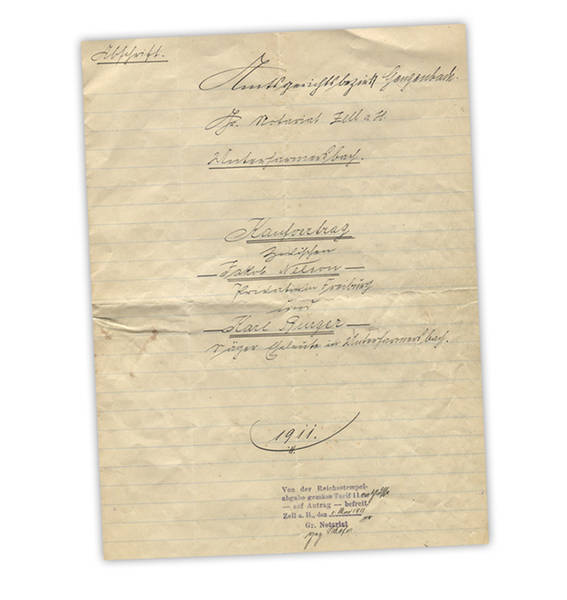 Abschrift.
Amtsgerichtsbezirk Gengenbach.
Gr. Notariat Zell a/H
Unterharmersbach.
Kaufvertrag
zwischen
— Jakob Nelson —
Privatier in Freiburg
und
— Karl Burger —
Säger Eheleute in Unterharmersbach.
1911.
Von der Reichsstempel-
abgabe gemäss Tarif 11
— auf Antrag — befreit.
Zell a. H., den 1911
Gr. Notariat
gez.